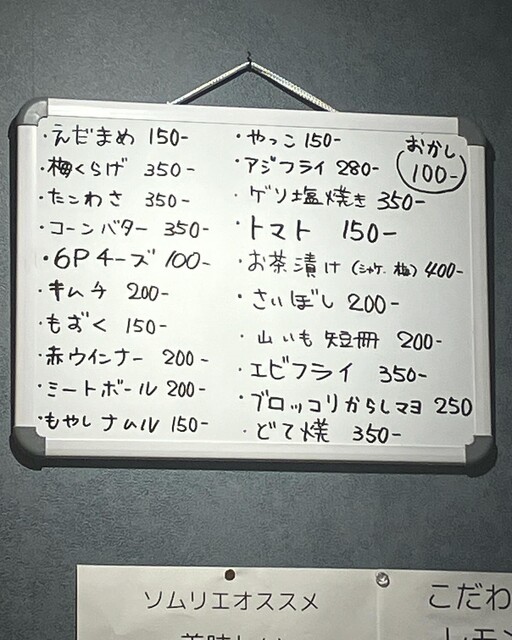 ・えだまめ 150-
・梅くらげ 350-
・たこわさ 350-
・コーンバター 350-
・6Pチーズ 100-
・キムチ 200-
・もずく 150-
・赤ウインナー 200-
・ミートボール 200-
・もやしナムル 150-
・やっこ 150-
・アジフライ 280-
・ゲソ塩焼き 350-
・トマト 150-
・お茶漬け(シャケ.梅) 400-
・さいぼし 200-
・山いも短冊 200-
・エビフライ 350-
・ブロッコリからしマヨ 250
・どて焼 350-
おかし
100-
ソムリエオススメ
こだわ